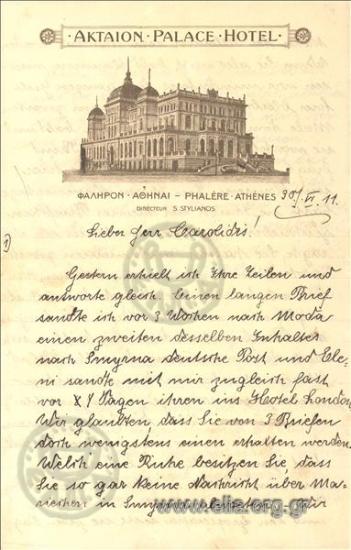 AKTAION · PALACE · HOTEL
ΦΑΛΗΡΟΝ · ΑΘΗΝΑΙ – PHALÈRE · ATHÈNES
DIRECTEUR S. STYLIANOS
30/VI 11.
Lieber Herr Carolidis!
1)
Gestern erhielt ich Ihre Zeilen und
antworte gleich. Einen langen Brief
sandte ich vor 3 Wochen nach Moda
einen zweiten desselben Inhaltes
nach Smyrna deutsche Post und Ele-
ni sandte mit mir zugleich fast
vor Tagen ihren ins Hotel London.
Wir glaubten, dass Sie von 3 Briefen
doch wenigstens einen erhalten werden.
Welch eine Ruhe besitzen Sie, dass
Sie so gar keine Nachricht über Ma-
in Smyrna Wir
www.elia.org.gr